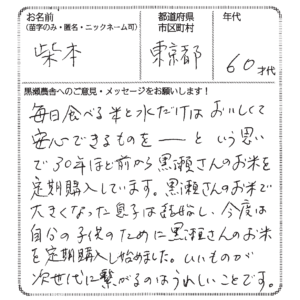 お名前
(苗字のみ・匿名・ニックネーム可)
柴本
都道府県
市区町村
東京都
年代
60才代
黒瀬農舎へのご意見・メッセージをお願いします!
毎日食べる米と水だけはおいしくて
安心できるものを――という思い
で30年ほど前から黒瀬さんのお米を
定期購入しています。黒瀬さんのお米で
大きくなった息子は結婚し、今度は
自分の子供のために黒瀬さんのお米
を定期購入し始めました。いいものが
次世代に繋がるのはうれしいことです。